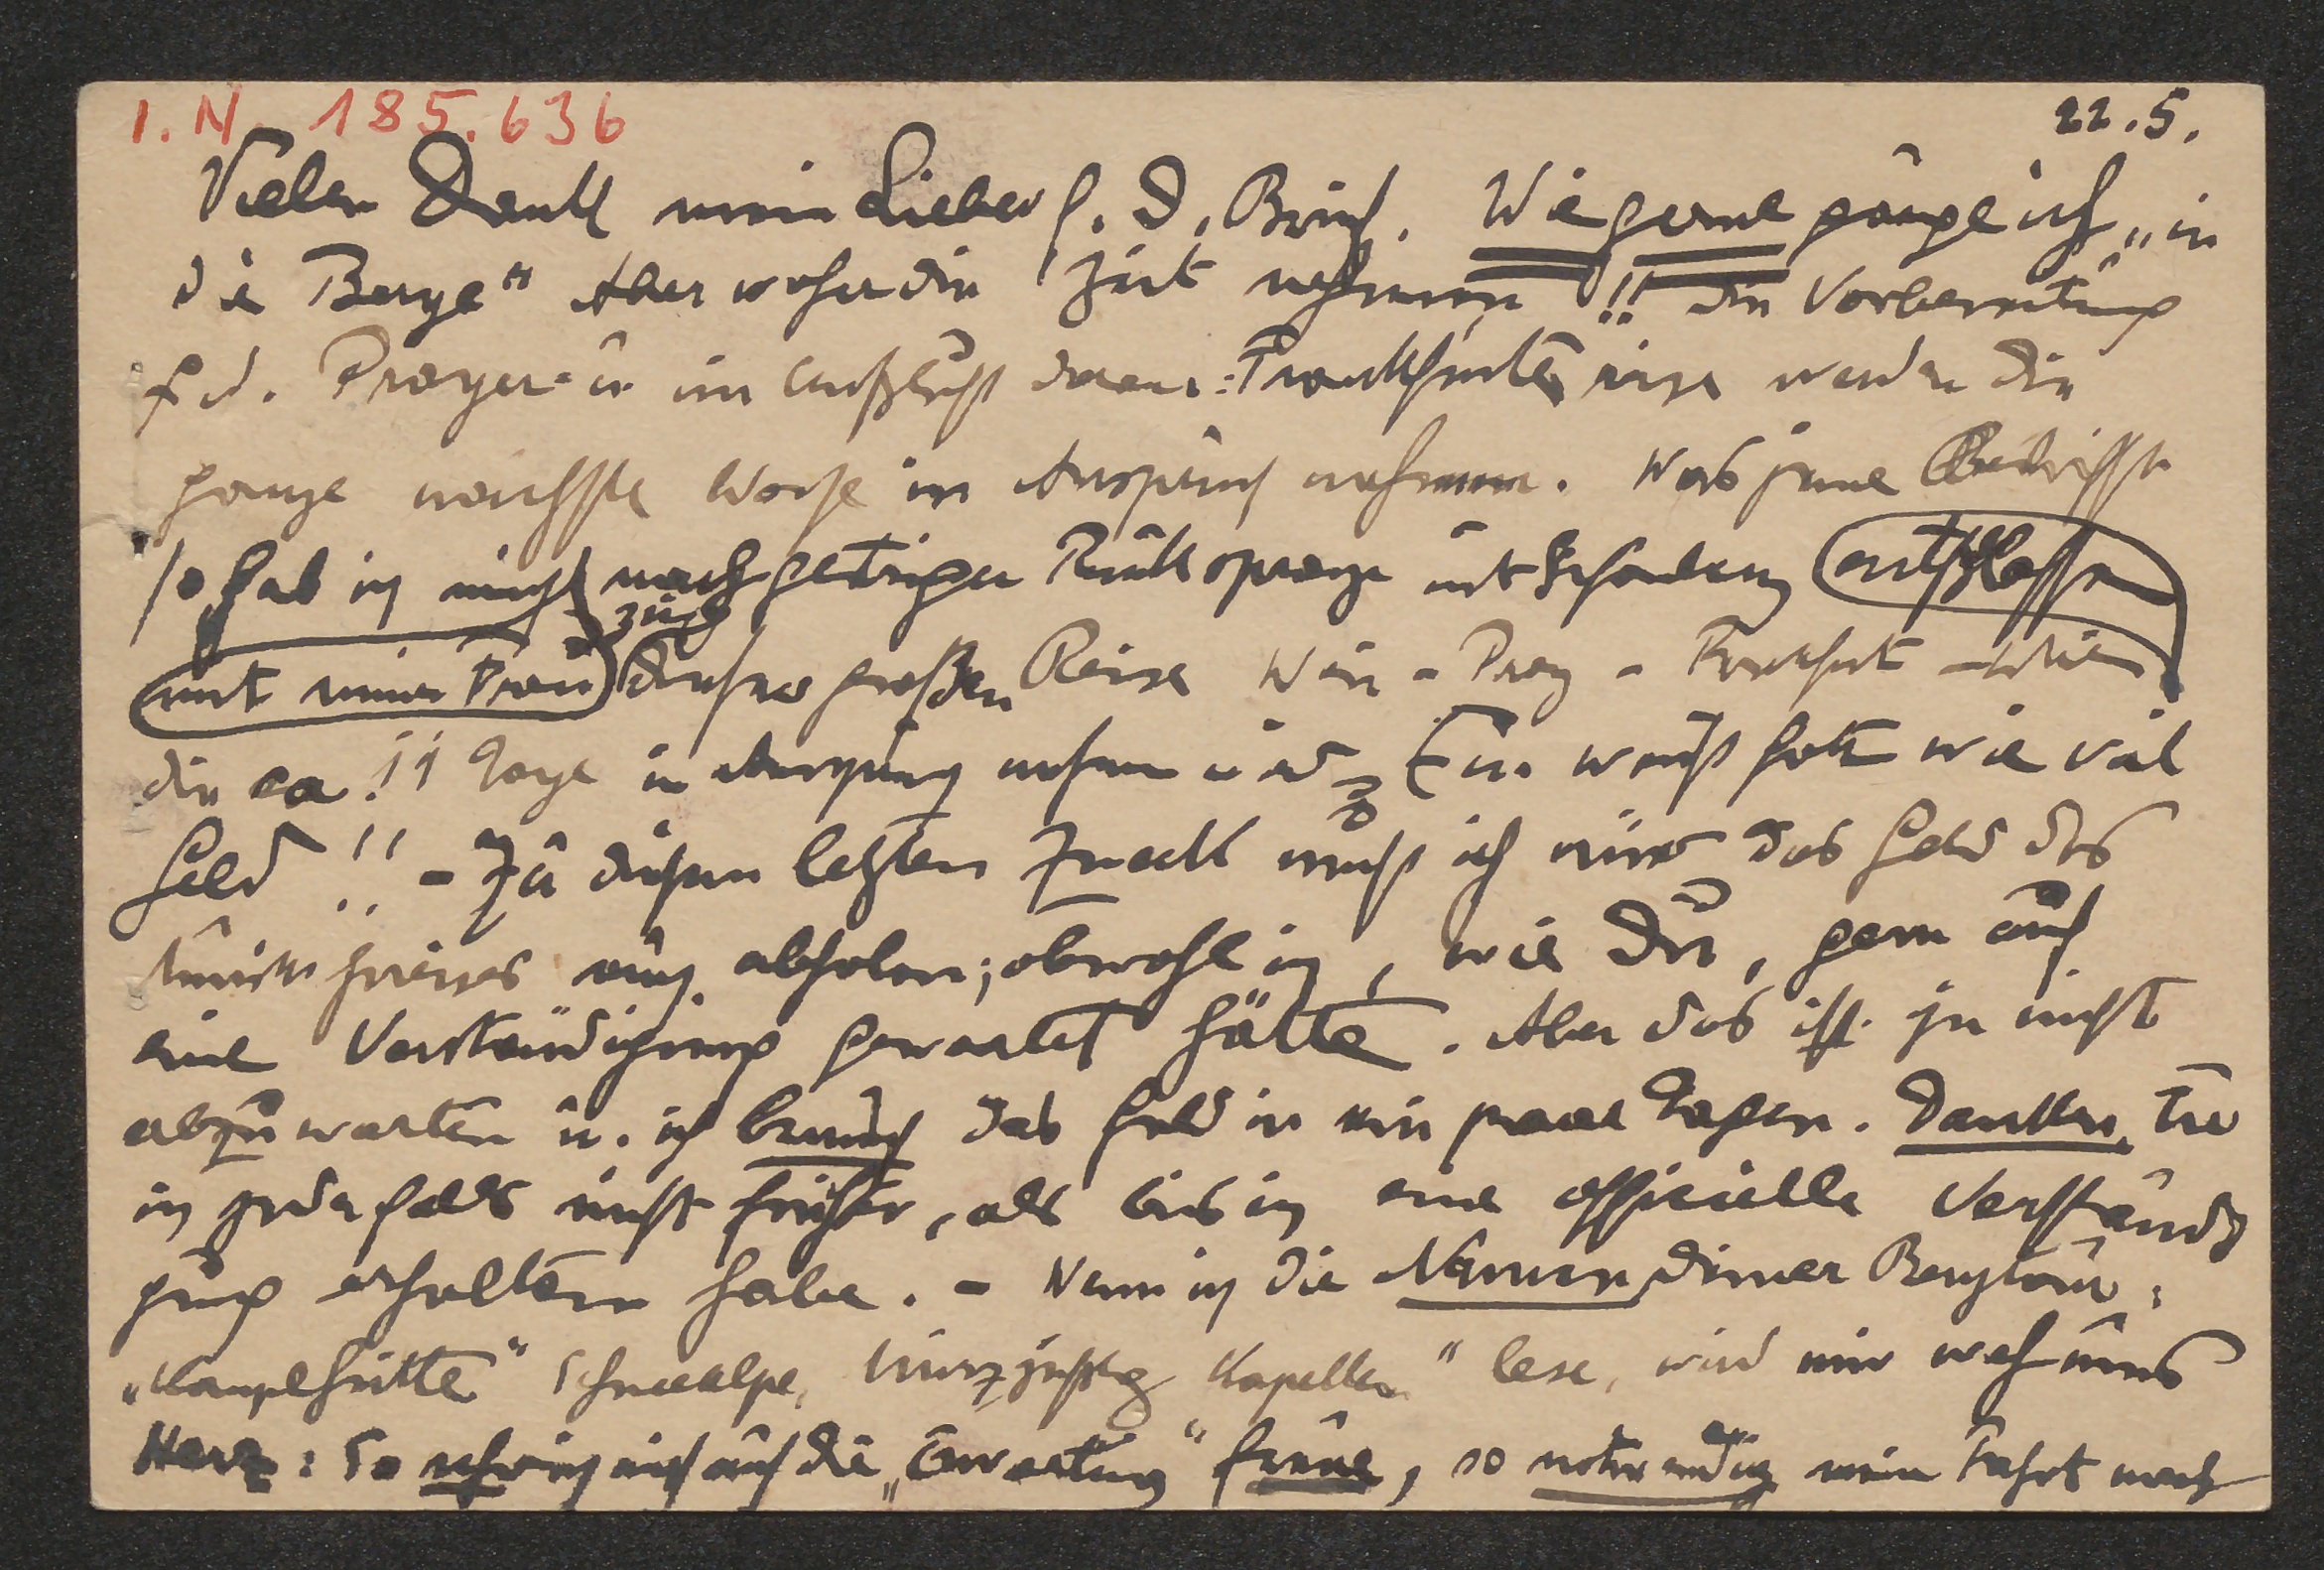 I. N. 185.636
22.5.
Vielen Dank mein Lieber f. D. Brief. Wie gerne gänge ich „in
die Berge“ Aber woher die Zeit nehmen!! Die Vorbereitung
f d. Prager- u im Anschluß daran: Frankfurter reise werden die
ganze nächste Woche in Anspruch nehmen. Was jene betrifft
so hab ich mich nach gestriger Rücksprache mit entschlossen
mit meiner Frau zu dieser großen Reise Wien - Prag - Frankfurt - Wien
die ca 11 Tage in Anspruch nehmen wird u. weiß Gott wie viel
Geld!! - Zu diesem letzten Zweck muß ich mir das Geld des
Kunstpreises abholen; obwohl ich, wie Du, gern auf
eine Verständigung gewartet hätte. Aber das ist ja nicht
abzuwarten u. ich brauch das Geld in ein paar Tagen. Danken tu
ich jedenfalls nicht früher, als bis ich eine officielle Verständi
gung erhalten habe. - Wenn ich die Namen Deiner Bergtour:
„ Schneealpe, Kapellen“ lese, wird mir weh ums
Herz: So sehr ich mich auf die „Erwartung“ freue, so notwendig mein Fahrt nach